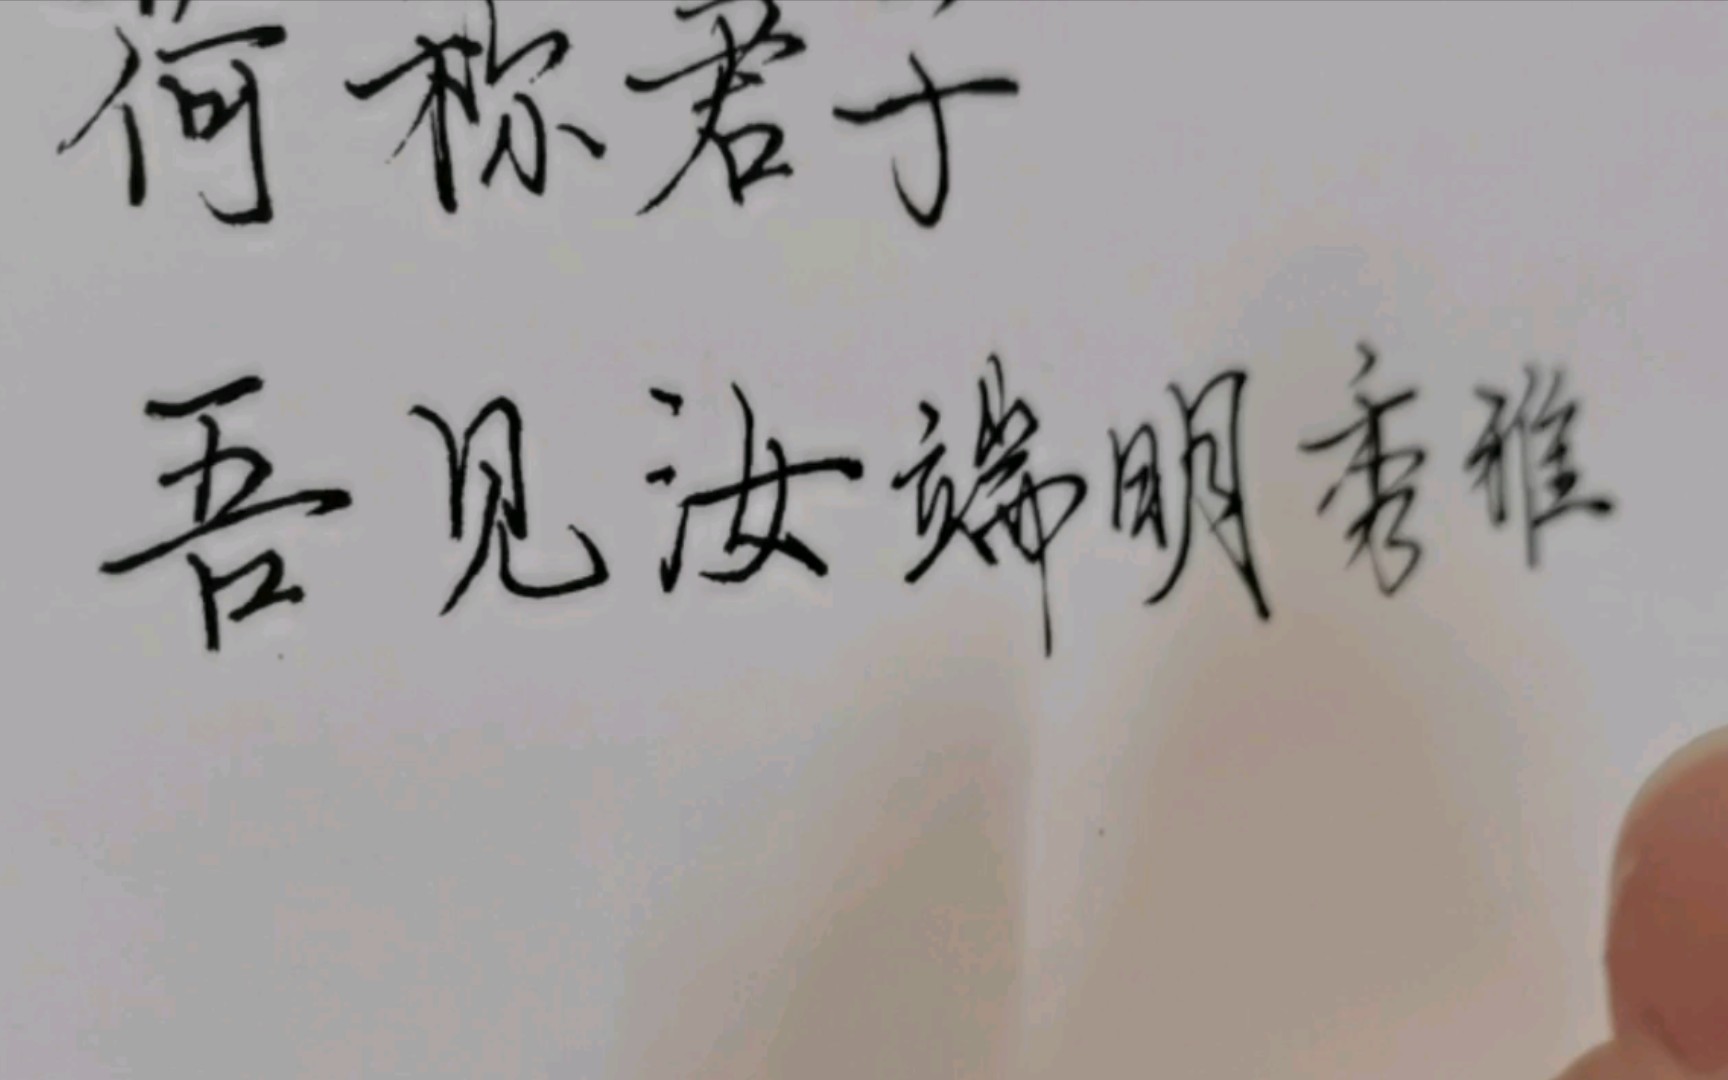 荷称君子
吾见汝端明秀雅